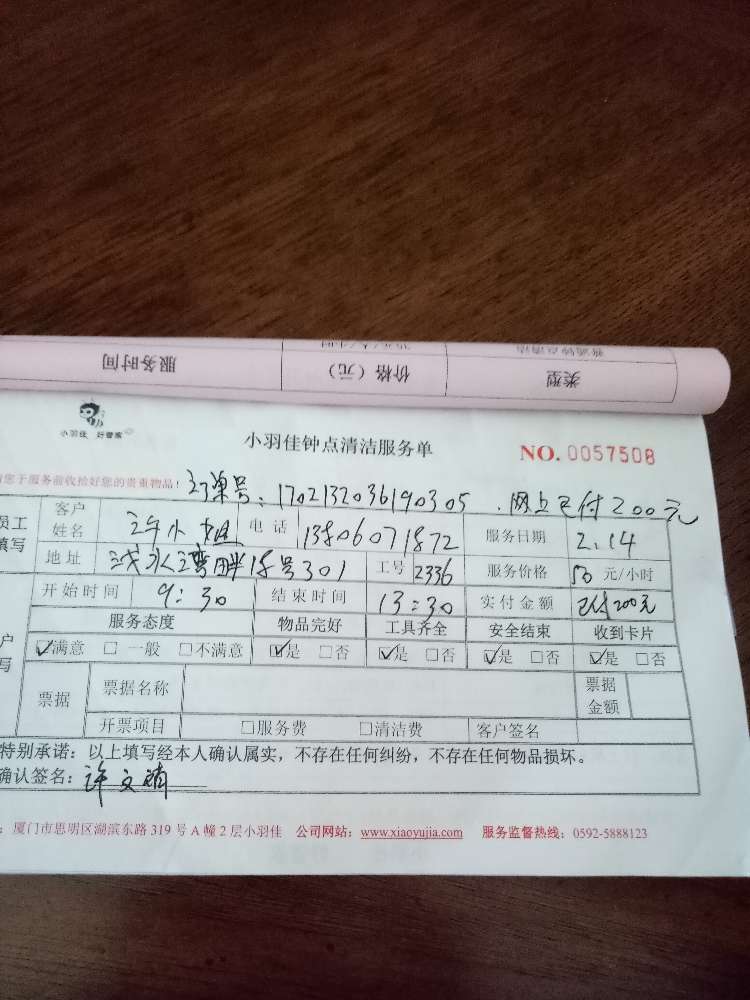 服务时间 价格（元） 类型
小羽佳 好管家
小羽佳钟点清洁服务单 NO. 0057508
您于服务前收捡好您的贵重物品！
订单号：1702132036190305 . 网上已付200元
员工 填写 客户姓名 许小姐 电话 13806071872 服务日期 2.14
地址 301 工号 2336 服务价格 50 元/小时
开始时间 9:30 结束时间 13:30 实付金额 已付200元
服务态度 物品完好 工具齐全 安全结束 收到卡片
☑满意 □一般 □不满意 ☑是 □否 ☑是 □否 ☑是 □否 ☑是 □否
票据 票据名称 票据金额
开票项目 □服务费 □清洁费 客户签名
特别承诺：以上填写经本人确认属实，不存在任何纠纷，不存在任何物品损坏。
确认签名：许文
：厦门市思明区湖滨东路 319 号 A 幢 2 层小羽佳 公司网站：www.xiaoyujia.com 服务监督热线：0592-5888123